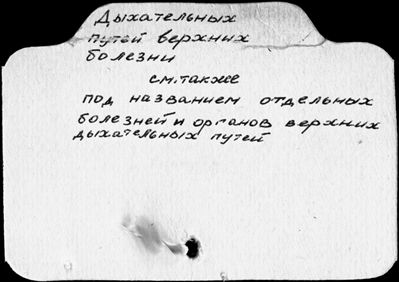 Дыхательных
путей верхних
болезни
см.также
под названием отдельных
болезней и органов верхних
дыхательных путей